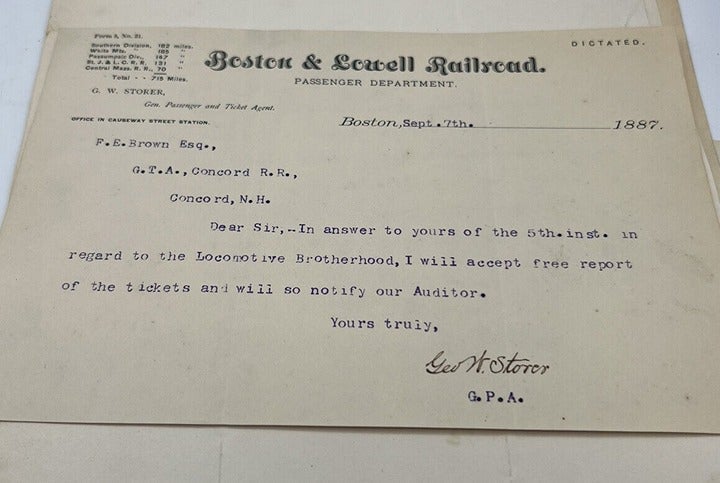 Form 5, No. 21.
Southern Division, 182 miles.
White Mts. " 185 "
Passumpsic Div., 147 "
St. J. & L. C. R. R., 131 "
Central Mass. R. R., 70 "
Total - - 715 Miles.
DICTATED.
Boston & Lowell Railroad.
PASSENGER DEPARTMENT.
G. W. STORER,
Gen. Passenger and Ticket Agent.
OFFICE IN CAUSEWAY STREET STATION.
Boston, Sept. 7th. 1887.
F.E.Brown Esq.,
G.T.A., Concord R.R.,
Concord, N.H.
Dear Sir,--In answer to yours of the 5th.inst. in
regard to the Locomotive Brotherhood, I will accept free report
of the tickets and will so notify our Auditor.
Yours truly,
Geo W. Storer
G.P.A.